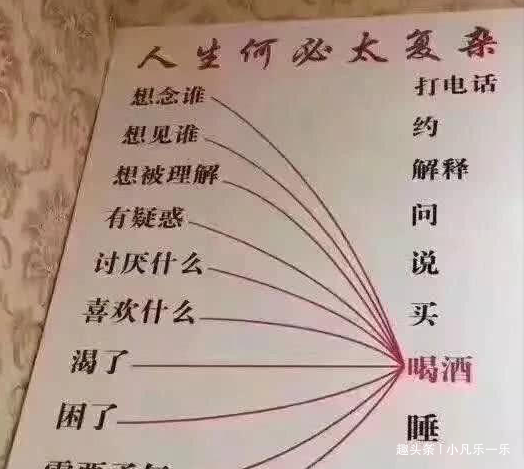 人生何必太复杂
想念谁 打电话
想见谁 约
想被理解 解释
有疑惑 问
讨厌什么 说
喜欢什么 买
渴了 喝酒
困了 睡
趣头条 | 小凡乐一乐